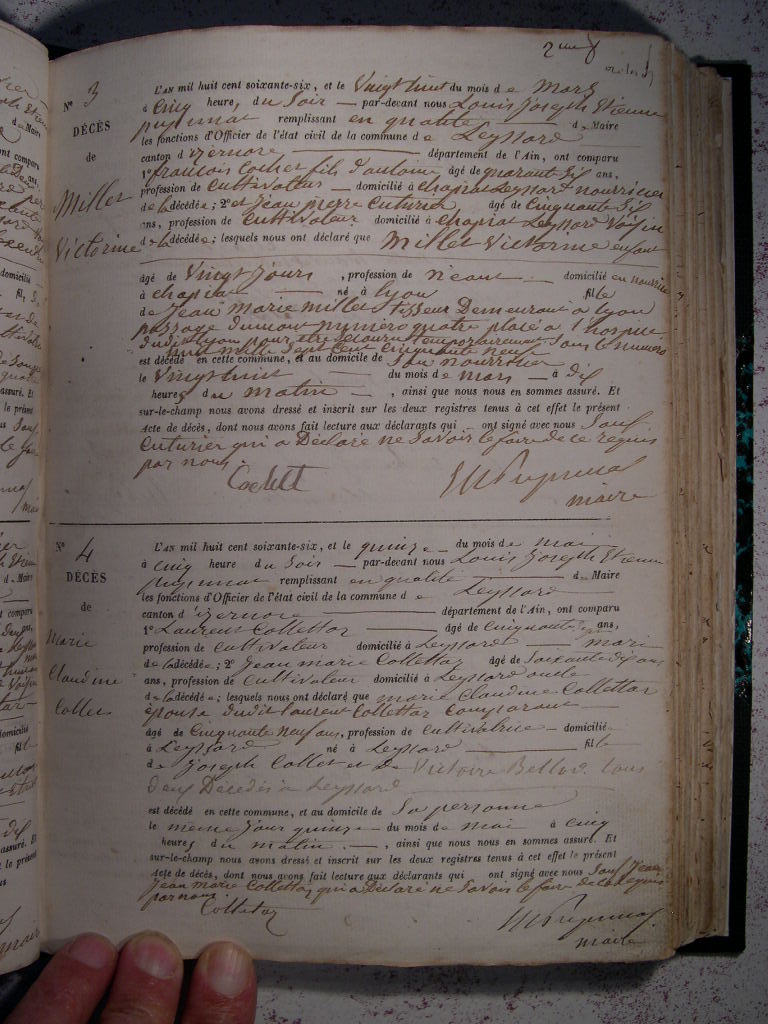 N° 3
DÉCÈS
de
Millet
Victorine
L'AN mil huit cent soixante-six, et le Vingt huit du mois de Mars
à Cinq heures du Soir — par-devant nous Louis Joseph Etienne
remplissant en qualité de Maire
les fonctions d'Officier de l'état civil de la commune de Leyssard
canton d'izernore département de l'Ain, ont comparu
1° francois Cochet fils d'antoine âgé de quarante Six ans,
profession de Cultivateur domicilié à Chapiat Leyssard nourricier
de la décédée; 2° et Jean pierre Cuturier âgé de Cinquante Six
ans, profession de Cultivateur domicilié à chapiat Leyssard Voisin
de la décédée; lesquels nous ont déclaré que Millet Victorine enfant
âgé de Vingt jours, profession de néant domicilié en nourrice
à chapiat né à Lyon fille
de Jean Marie Millet tisseur Demeurant à Lyon
passage numéro quatre placé a l'hospice
dudit Lyon pour être Sous le numéro
huit mille Sept Cent Cinquante neuf
est décédé en cette commune, et au domicile de Son nourricier
le Vingt huit du mois de mars à dix
heures du matin, ainsi que nous nous en sommes assuré. Et
sur-le-champ nous avons dressé et inscrit sur les deux registres tenus à cet effet le présent
Acte de décès, dont nous avons fait lecture aux déclarants qui — ont signé avec nous Sauf
Cuturier qui a Déclaré ne Savoir le faire de ce requis
par nous.
Cochet
maire
N° 4
DÉCÈS
de
Marie
Claudine
Collet
L'AN mil huit cent soixante-six, et le quinze du mois de mai
à cinq heure du Soir — par-devant nous Louis Joseph Etienne
remplissant en qualité de Maire
les fonctions d'Officier de l'état civil de la commune de Leyssard
canton d'izernore département de l'Ain, ont comparu
1° Laurent Collettaz âgé de Cinquante ans,
profession de Cultivateur domicilié à Leyssard mari
de la décédée; 2° Jean marie Collettaz âgé de Soixante dix ans
ans, profession de Cultivateur domicilié à Leyssard oncle
de la décédée; lesquels nous ont déclaré que marie Claudine Collettaz
épouse dudit Laurent Collettaz Comparant
âgé de Cinquante neuf ans, profession de Cultivatrice domicilié
à Leyssard né à Leyssard fille
de Joseph Collet et de Victoire tous
deux Décédés à Leyssard
est décédé en cette commune, et au domicile de Sa personne
le même jour quinze du mois de mai à cinq
heures du matin, ainsi que nous nous en sommes assuré. Et
sur-le-champ nous avons dressé et inscrit sur les deux registres tenus à cet effet le présent
Acte de décès, dont nous avons fait lecture aux déclarants qui ont signé avec nous Sauf Jean
Jean marie Collettaz qui a Déclaré ne Savoir le faire de ce requis
par nous.
Collettaz
maire